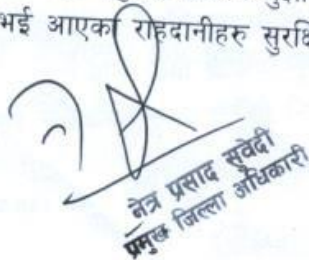 भई आएका राहदानीहरु सुरक्षि
नेत्र प्रसाद सुवेदी
प्रमुख जिल्ला अधिकारी